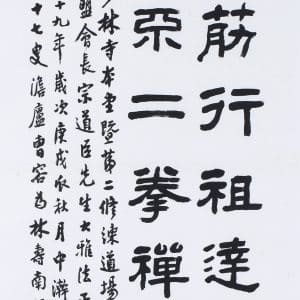 筋行祖達
二拳禪
少林寺本堂暨第二修練道場
盟會長宗道臣先生大雅法正
十九年歲次庚戌秋月中澣
十七叟澹廬曹容為林壽南